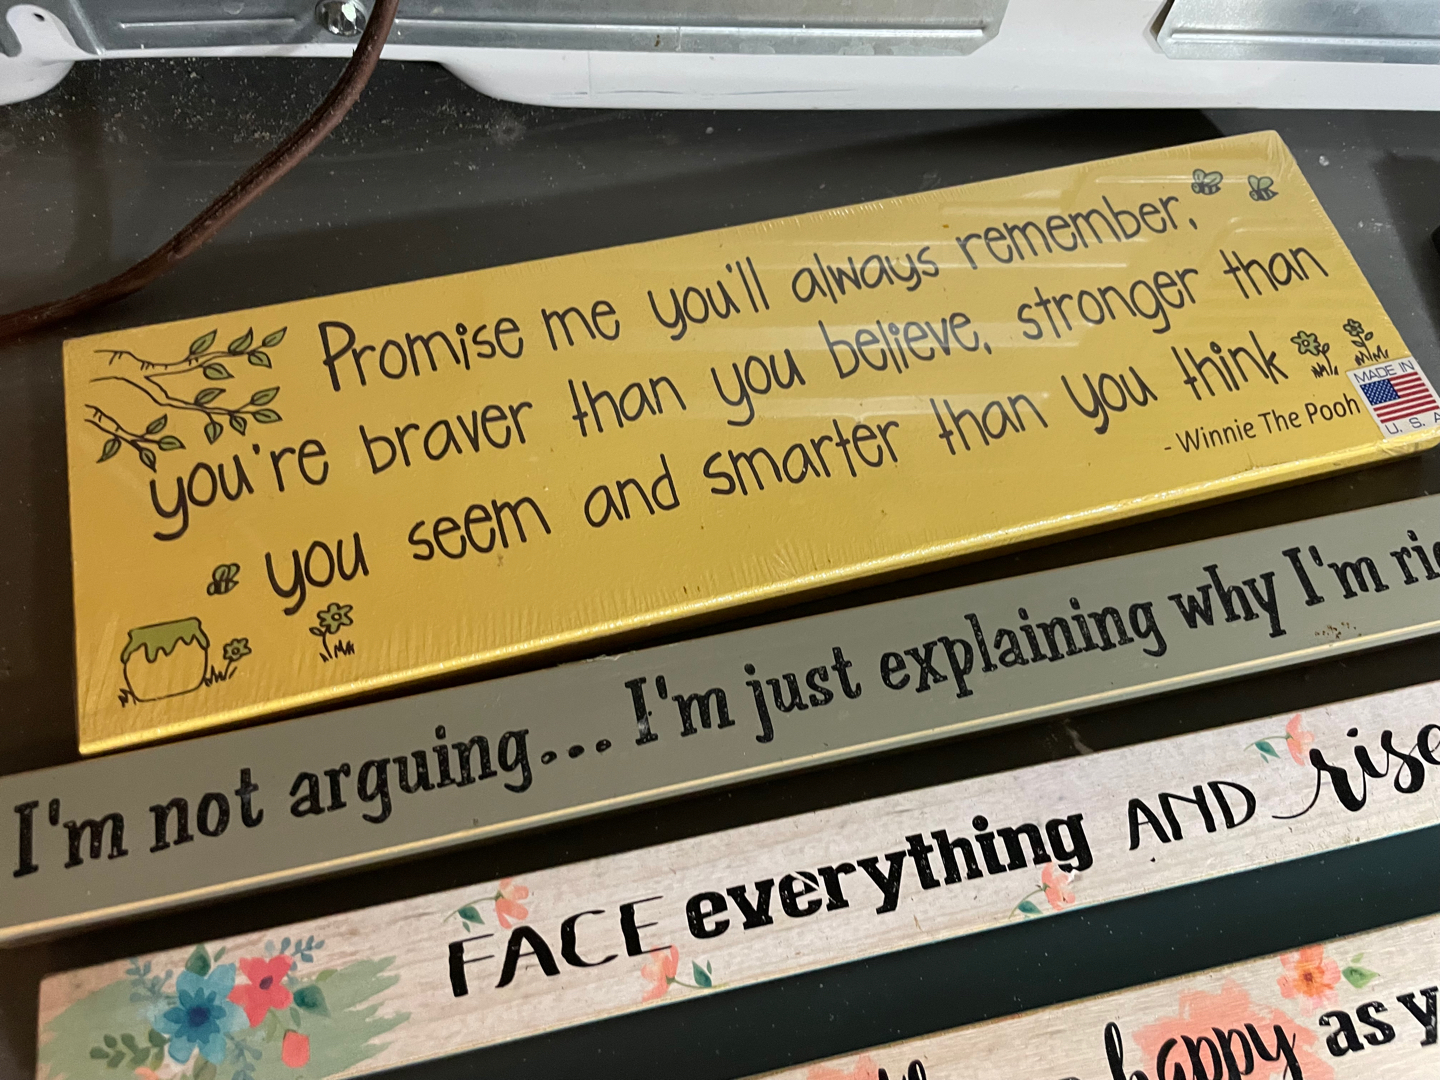 Promise me you'll always remember,
you're braver than you believe, stronger than
you seem and smarter than you think
- Winnie The Pooh
MADE IN
U. S. A
I'm not arguing... I'm just explaining why I'm
FACE everything AND rise
happy as